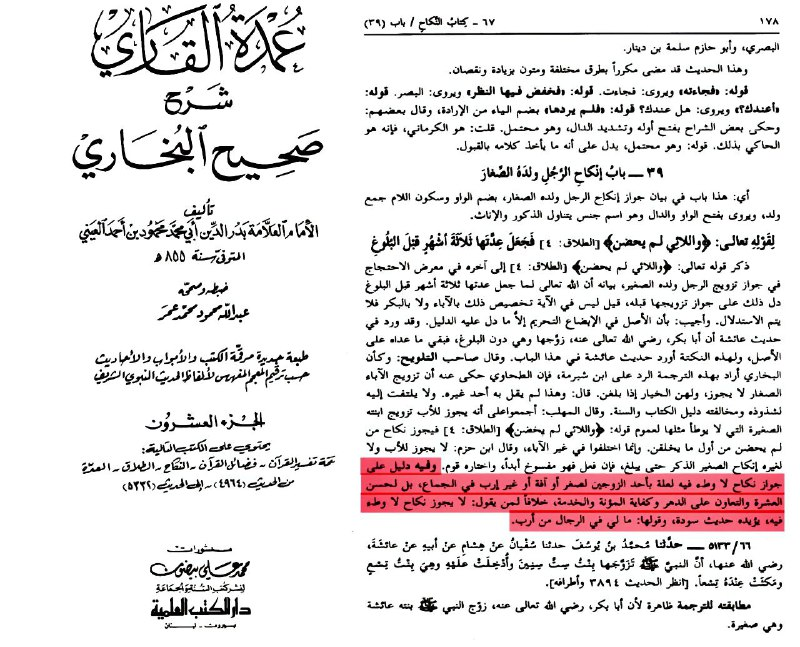 ١٧٨
٦٧ - كِتابُ النِّكاحِ / باب (٣٩)
البصري، وأبو حازم سلمة بن دينار.
وهذا الحديث قد مضى مكرراً بطرق مختلفة ومتون بزيادة ونقصان.
قوله: «فجاءته» ويروى: فجاءت. قوله: «فخفض فيها النظر» ويروى: البصر. قوله:
«أعندك؟» ويروى: هل عندك؟ قوله: «فلم يردها» بضم الياء من الإرادة، وقال بعضهم:
وحكى بعض الشراح بفتح أوله وتشديد الدال، وهو محتمل. قلت: هو الكرماني، فإنه هو
الحاكي بذلك. قوله: وهو محتمل، يدل على أنه ما يأخذ كلامه بالقبول.
٣٩ ــ بابُ إنْكاحِ الرَّجُلِ ولدَهُ الصِّغارَ
أي: هذا باب في بيان جواز إنكاح الرجل ولده الصغار، بضم الواو وسكون اللام جمع
ولد، ويروى بفتح الواو والدال وهو اسم جنس يتناول الذكور والإناث.
لِقَوْلِهِ تعالى: ﴿واللائي لم يحضن﴾ [الطلاق: ٤] فَجَعَلَ عِدَّتَها ثَلاَثَةَ أشْهُرٍ قَبْلَ البُلُوغِ
ذكر قوله تعالى: ﴿واللائي لم يحضن﴾ [الطلاق: ٤] إلى آخره في معرض الاحتجاج
في جواز تزويج الرجل ولده الصغير، بيانه أن الله تعالى لما جعل عدتها ثلاثة أشهر قبل البلوغ
دل ذلك على جواز تزويجها قبله، قيل ليس في الآية تخصيص ذلك بالآباء ولا بالبكر فلا
يتم الاستدلال. وأجيب: بأن الأصل في الإبضاع التحريم إلاَّ ما دل عليه الدليل. وقد ورد في
حديث عائشة أن أبا بكر، رضي الله تعالى عنه، زوّجها وهي دون البلوغ، فبقي ما عداه على
الأصل، ولهذه النكتة أورد حديث عائشة في هذا الباب. وقال صاحب التلويح: وكأن
البخاري أراد بهذه الترجمة الرد على ابن شبرمة، فإن الطحاوي حكى عنه أن تزويج الآباء
الصغار لا يجوز، ولهن الخيار إذا بلغن. قال: وهذا لم يقل به أحد غيره. ولا يلتفت إليه
لشذوذه ومخالفته دليل الكتاب والسنة. وقال المهلب: أجمعوا على أنه يجوز للأب تزويج ابنته
الصغيرة التي لا يوطأ مثلها لعموم قوله: ﴿واللائي لم يحضن﴾ [الطلاق: ٤] فيجوز نكاح من
لم يحضن من أول ما يخلقن. وإنما اختلفوا في غير الآباء، وقال ابن حزم: لا يجوز للأب ولا
لغيره إنكاح الصغير الذكر حتى يبلغ، فإن فعل فهو مفسوخ أبداً، واختاره قوم. وفيه دليل على
جواز نكاح لا وطء فيه لعلة بأحد الزوجين لصغر أو آفة أو غير إرب في الجماع، بل لحسن
العشرة والتعاون على الدهر وكفاية المؤنة والخدمة، خلافاً لمن يقول: لا يجوز نكاح لا وطء
فيه، يؤيده حديث سودة، وقولها: ما لي في الرجال من أرب.
٦٦/ ٥١٣٣ ــ حدَّثنا مُحَمَّدُ بنُ يُوسُفَ حدثنا سُفْيانُ عنْ هِشامٍ عنْ أبِيهِ عنْ عائشَةَ،
رضي الله عنها، أنَّ النبيَّ ﷺ تَزَوَّجَها بِنْتُ سِتِّ سِنِينَ وأُدْخِلَتْ عَلَيْهِ وهْيَ بِنْتُ تِسْعٍ
ومَكَثَتْ عِنْدَهُ تِسْعاً. [انظر الحديث ٣٨٩٤ وأطرافه].
مطابقته للترجمة ظاهرة لأن أبا بكر، رضي الله تعالى عنه، زوّج النبي ﷺ بنته عائشة
وهي صغيرة.
عُمْدَةُ القَارِي
شَرْحُ
صَحِيح البُخَاري
تأليف
الأمام العلّامة بدر الدين أبي محمد محمود بن أحمد العيني
المتوفى سنة ٨٥٥ هـ
ضبطه وصححه
عبد الله محمود محمد عمر
طبعة جديدة مرقّمة الكتب والأبواب والأحاديث
حسب ترقيم المعجم المفهرس لألفاظ الحديث النبوي الشريف
الجزء العشرون
يحتوي على الكتب التالية:
تتمة تفسير القرآن - فضائل القرآن - النكاح - الطلاق - العدة
من الحديث (٤٩٦٤) - إلى الحديث (٥٣٣٢)
منشورات
محمد علي بيضون
لنشر كتب السنة والجماعة
دار الكتب العلمية
بيروت - لبنان